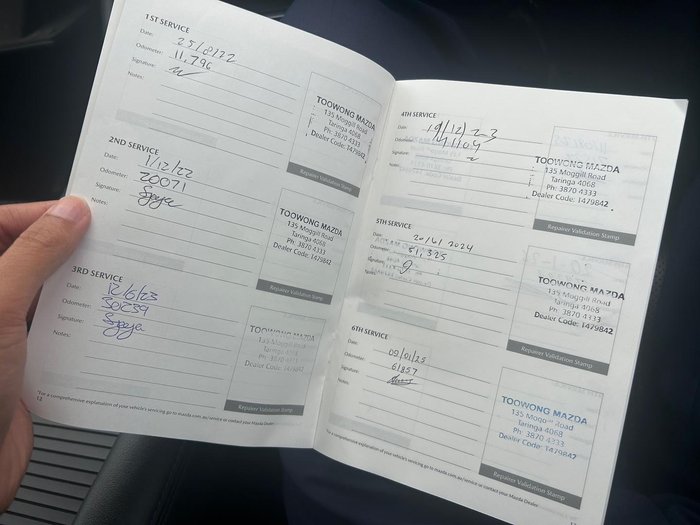 1ST SERVICE
Date: 25/8/22
Odometer: 11,796
Signature:
Notes:
TOOWONG MAZDA
135 Moggill Road
Taringa 4068
Ph: 3870 4333
Dealer Code: 1479842
Repairer Validation Stamp
2ND SERVICE
Date: 1/12/22
Odometer: 20071
Signature:
Notes:
TOOWONG MAZDA
135 Moggill Road
Taringa 4068
Ph: 3870 4333
Dealer Code: 1479842
Repairer Validation Stamp
3RD SERVICE
Date: 12/6/23
Odometer: 30639
Signature:
Notes:
TOOWONG MAZDA
135 Moggill Road
Taringa 4068
Ph: 3870 4333
Dealer Code: 1479842
Repairer Validation Stamp
*For a comprehensive explanation of your vehicle's servicing go to mazda.com.au/service or contact your Mazda Dealer.
12
4TH SERVICE
Date: 19/12/23
Odometer: 41109
Signature:
Notes:
TOOWONG MAZDA
135 Moggill Road
Taringa 4068
Ph: 3870 4333
Dealer Code: 1479842
Repairer Validation Stamp
5TH SERVICE
Date: 2024
Odometer: 51,325
Signature:
Notes:
TOOWONG MAZDA
135 Moggill Road
Taringa 4068
Ph: 3870 4333
Dealer Code: 1479842
Repairer Validation Stamp
6TH SERVICE
Date: 09/01/25
Odometer: 61857
Signature:
Notes:
TOOWONG MAZDA
135 Moggill Road
Taringa 4068
Ph: 3870 4333
Dealer Code: 1479842
Repairer Validation Stamp
*For a comprehensive explanation of your vehicle's servicing go to mazda.com.au/service or contact your Mazda Dealer.